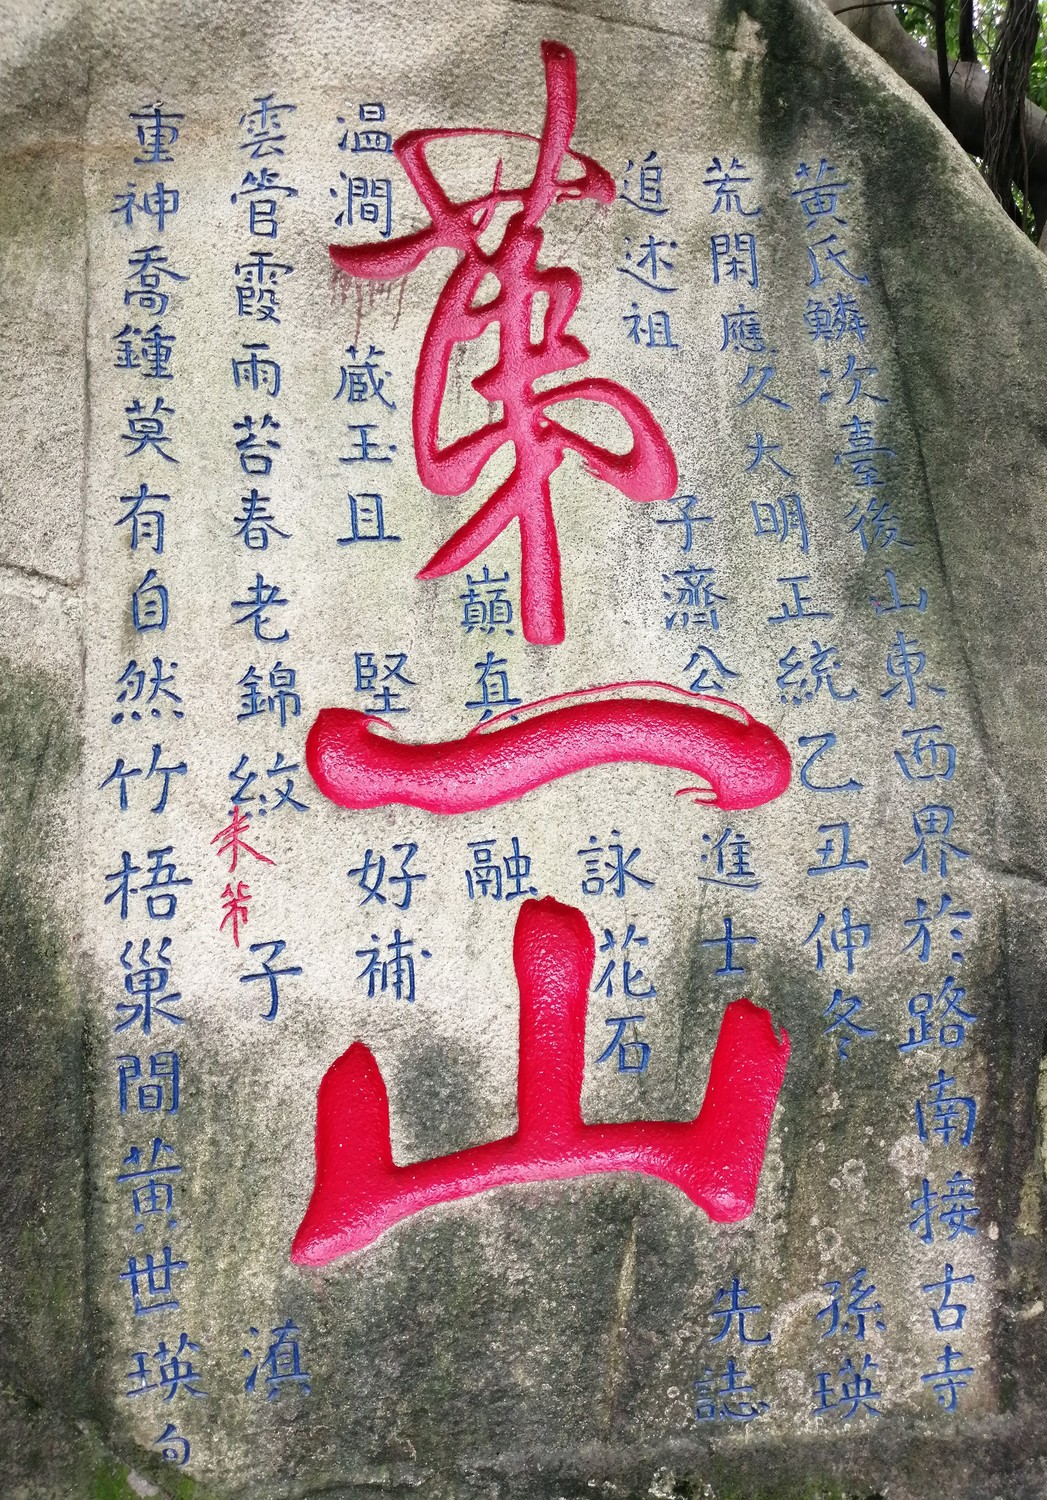 黃氏鱗次臺後山東西界於路南接古寺
荒閑應久大明正統乙丑伸冬孫瑛
追述祖子濟公進士先誌
詠花石
第一山
巔真融
温澗蔵玉且堅好補
雲管霞雨苔春老錦紋子滇
米芾
重神喬鍾莫有自然竹梧巢間黄世瑛句